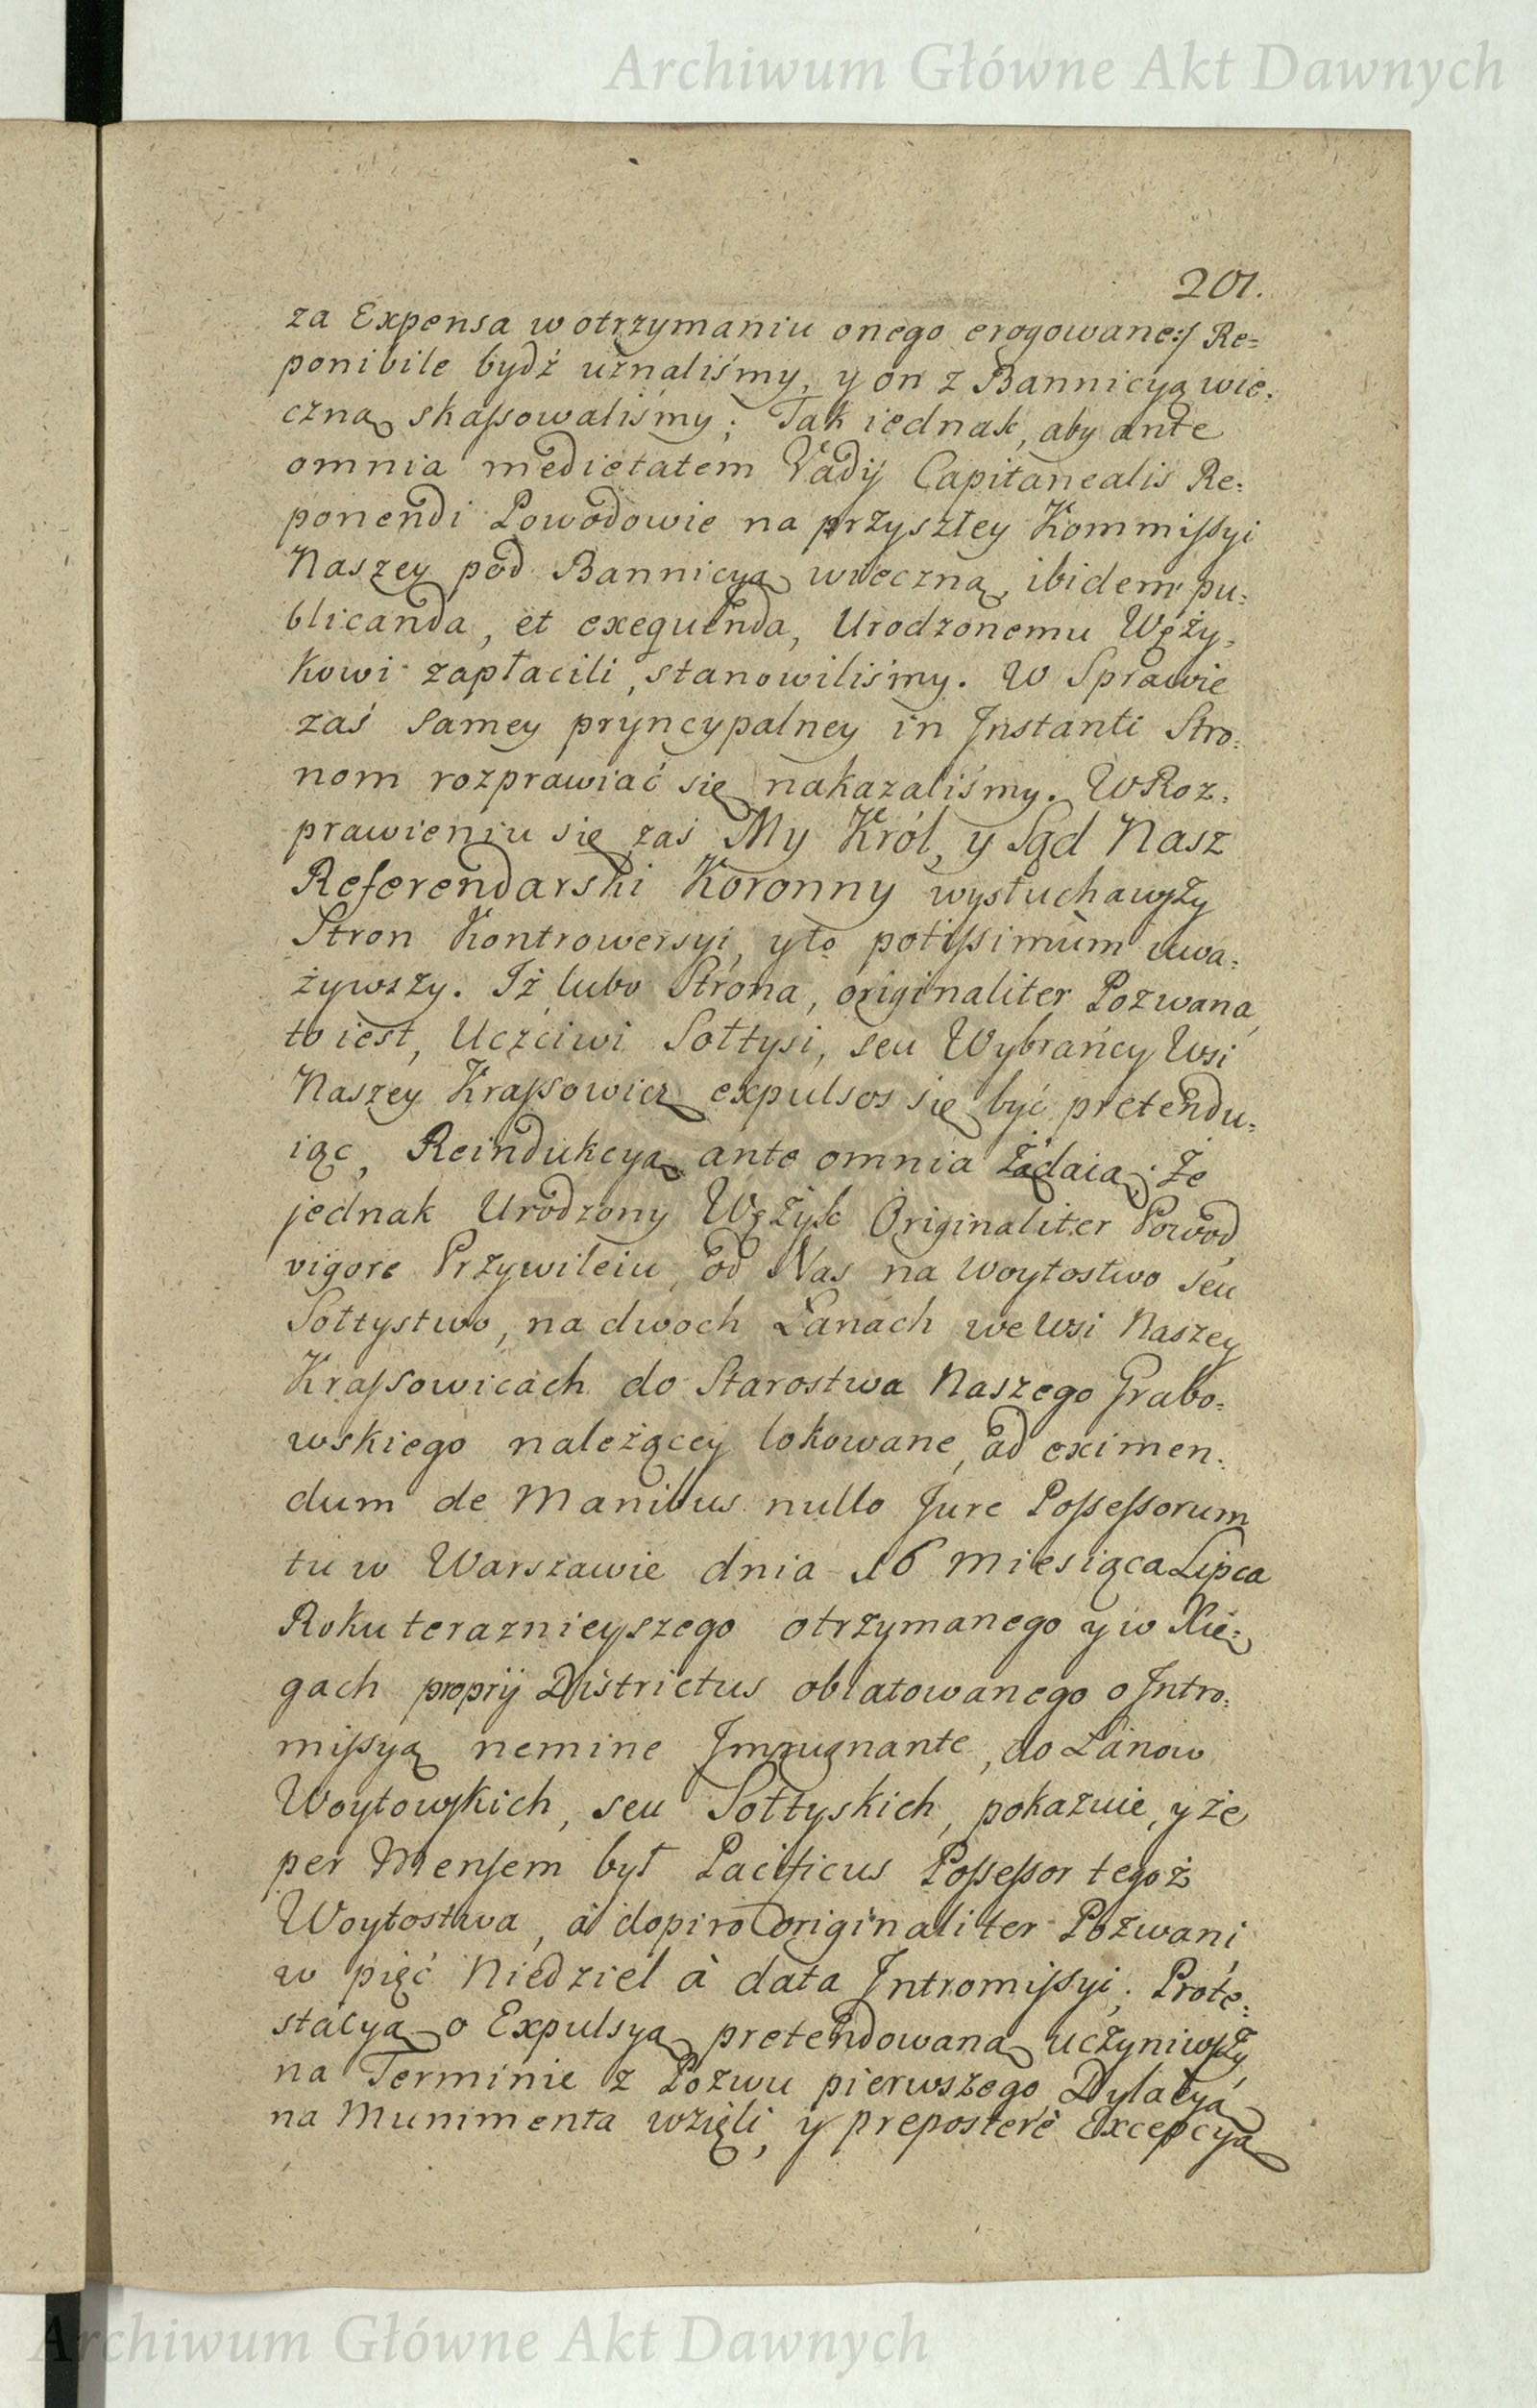 Archiwum Główne Akt Dawnych
201.
za Expensa w otrzymaniu onego erogowane:/ Re=
ponibile bydź uznaliśmy, y on z Bannicyą wie=
czną skassowaliśmy; Tak iednak, aby ante
omnia medietatem Vadij Capitanealis Re=
ponendi Powodowie na przyszłey Kommissyi
Naszey pod Bannicyą wieczną, ibidem pu=
blicanda, et exequenda, Urodzonemu Węży=
kowi zapłacili, stanowiliśmy. W Sprawie
zaś samey pryncypalney in Instanti Stro=
nom rozprawiać się nakazaliśmy. W Roz=
prawieniu się zaś My Król, y Sąd Nasz
Referendarski Koronny wysłuchawszy
Stron Kontrowersyi, y to potissimùm uwa=
żywszy. Iż lubo Strona, originaliter Pozwana,
to iest, Uczciwi Sołtysi, seu Wybrańcy Wsi
Naszey Krassowicz expulsos się być pretendu=
iąc, Reindukcyą ante omnia Żądaią; Że
jednak Urodzony Wężyk Originaliter Powod,
vigore Przywileiu, od Nas na Woytostwo seu
Sołtystwo, na dwoch Łanach we Wsi Naszey
Krassowicach do Starostwa Naszego Grabo=
wskiego należącey lokowane, ad eximen=
dum de Manibus nullo Jure Possessorum
tu w Warszawie dnia 16 Miesiąca Lipca
Roku teraznieyszego otrzymanego y w Xię=
gach proprij Districtus oblatowanego o Intro=
missyą nemine Impugnante, do Łanow
Woytowskich, seu Sołtyskich, pokazuie, y że
per Mensem był Pacificus Possessor tegoż
Woytostwa, à dopiro originaliter Pozwani
w pięć Niedziel à data Intromissyi, Prote=
stacyą o Expulsyą pretendowaną uczyniwszy,
na Terminie z Pozwu pierwszego Dylacyą
na Munimenta wzięli, y preposterè Excepcyą
Archiwum Główne Akt Dawnych